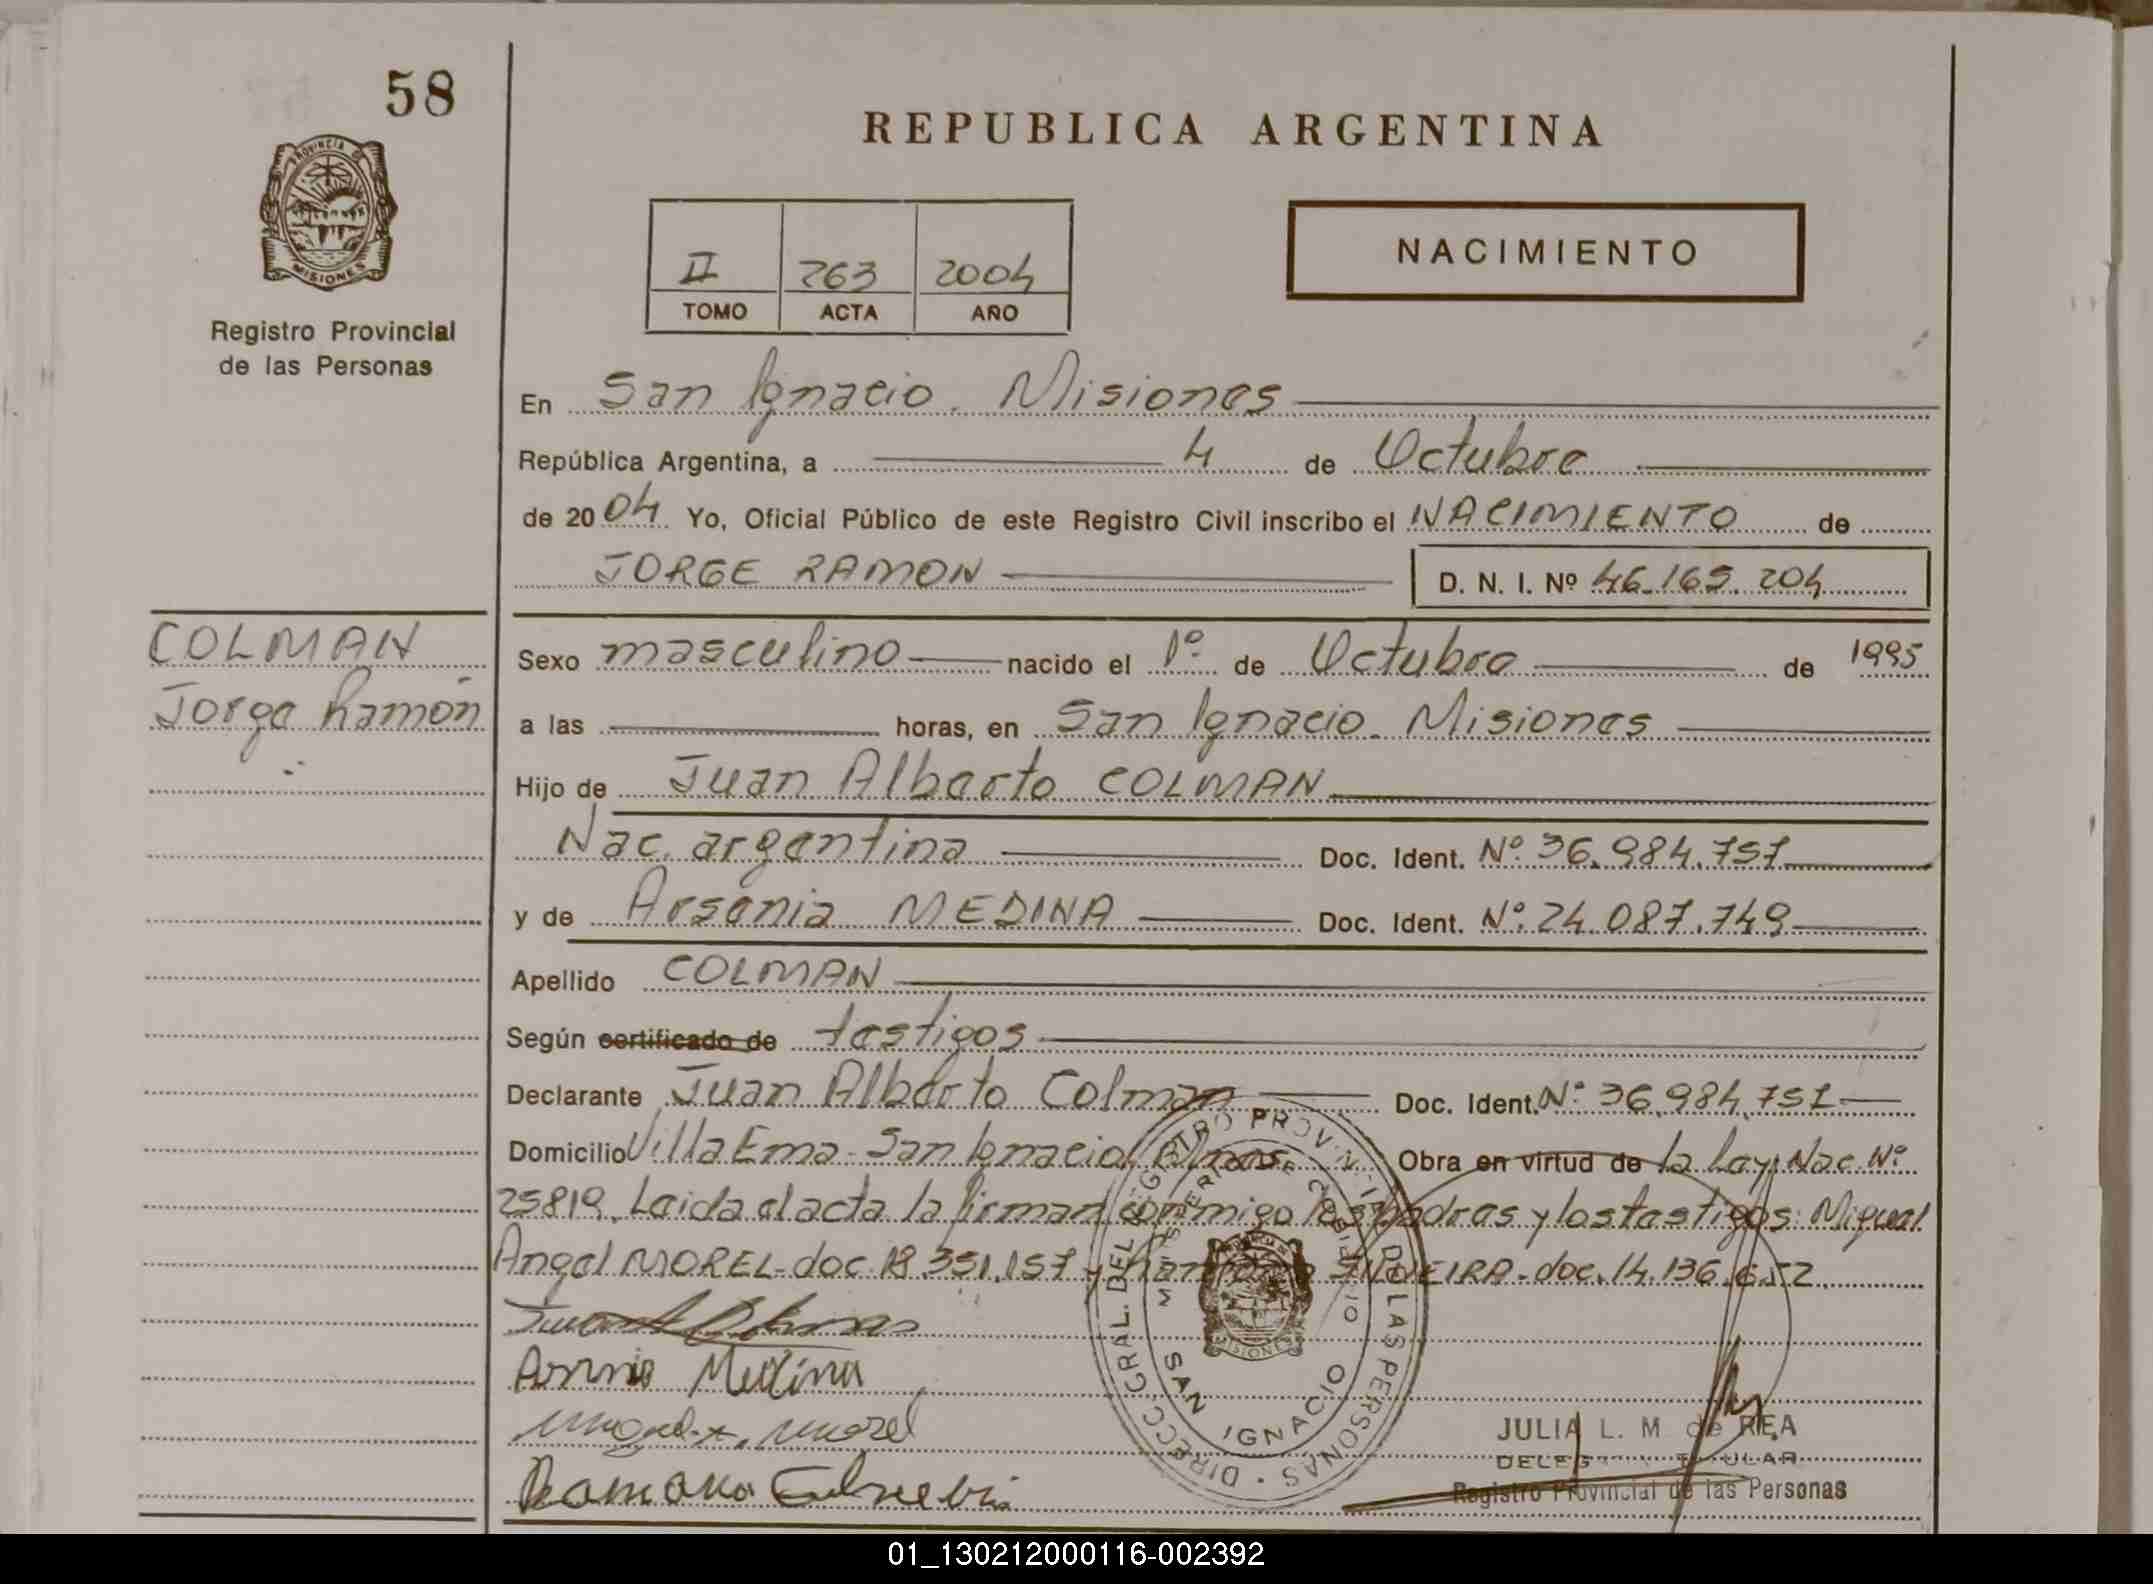 58
REPUBLICA ARGENTINA
PROVINCIA DE
MISIONES
Registro Provincial
de las Personas
II 263 2004
TOMO ACTA AÑO
NACIMIENTO
En San Ignacio. Misiones
República Argentina, a 4 de Octubre
de 2004 Yo, Oficial Público de este Registro Civil inscribo el NACIMIENTO de
JORGE RAMON D. N. I. Nº 46.165.204
COLMAN
Jorge Ramón
Sexo masculino nacido el 1º de Octubre de 1995
a las horas, en San Ignacio. Misiones
Hijo de Juan Alberto COLMAN
Nac. argentina Doc. Ident. Nº 36.984.757
y de Arsenia MEDINA Doc. Ident. Nº 24.087.749
Apellido COLMAN
Según certificado de testigos
Declarante Juan Alberto Colman Doc. Ident. Nº 36.984.757
Domicilio Villa Ema - San Ignacio Obra en virtud de la Ley Nac Nº
25819. Leida el acta la firman conmigo los padres y los testigos: Miguel
Angel MOREL - doc 18.351.157 y doc. 14.136.652
Medina
Miguel A. Morel
Ramona
DIRECC. GRAL. DEL REGISTRO PROVINCIAL DE LAS PERSONAS
SAN IGNACIO
MISIONES
JULIA L. M. de REA
TITULAR
Registro Provincial de las Personas
01_130212000116-002392